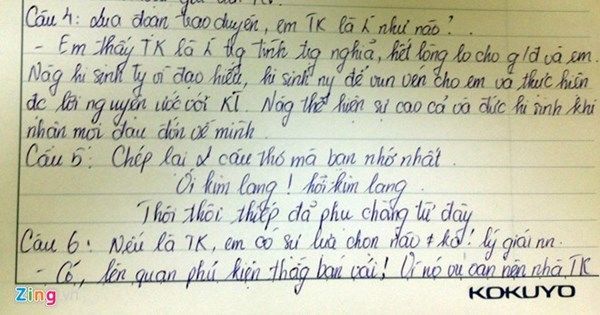 Câu 4: Qua đoạn trao duyên, em TK là ng như nào?
- Em thấy TK là ng trg tình trg nghĩa, hết lòng lo cho g/đ và em.
Nàg hi sinh ty vì đạo hiếu, hi sinh ny để vun vén cho em và thực hiện
đc lời nguyện ước với KT. Nàg thể hiện sự cao cả và đức hi sinh khi
nhận mọi đau đớn về mình.
Câu 5: Chép lại 2 câu thơ mà bạn nhớ nhất.
Ôi kim lang! hỡi kim lang
Thôi thôi thiếp đã phụ chàng từ đây
Câu 6: Nếu là TK, em có sự lựa chọn nào + ko! lý giải nn.
- Có, lên quan phủ kiện thằg bán vải! Vì nó vu oan nên nhà TK
Zing.vn
KOKUYO